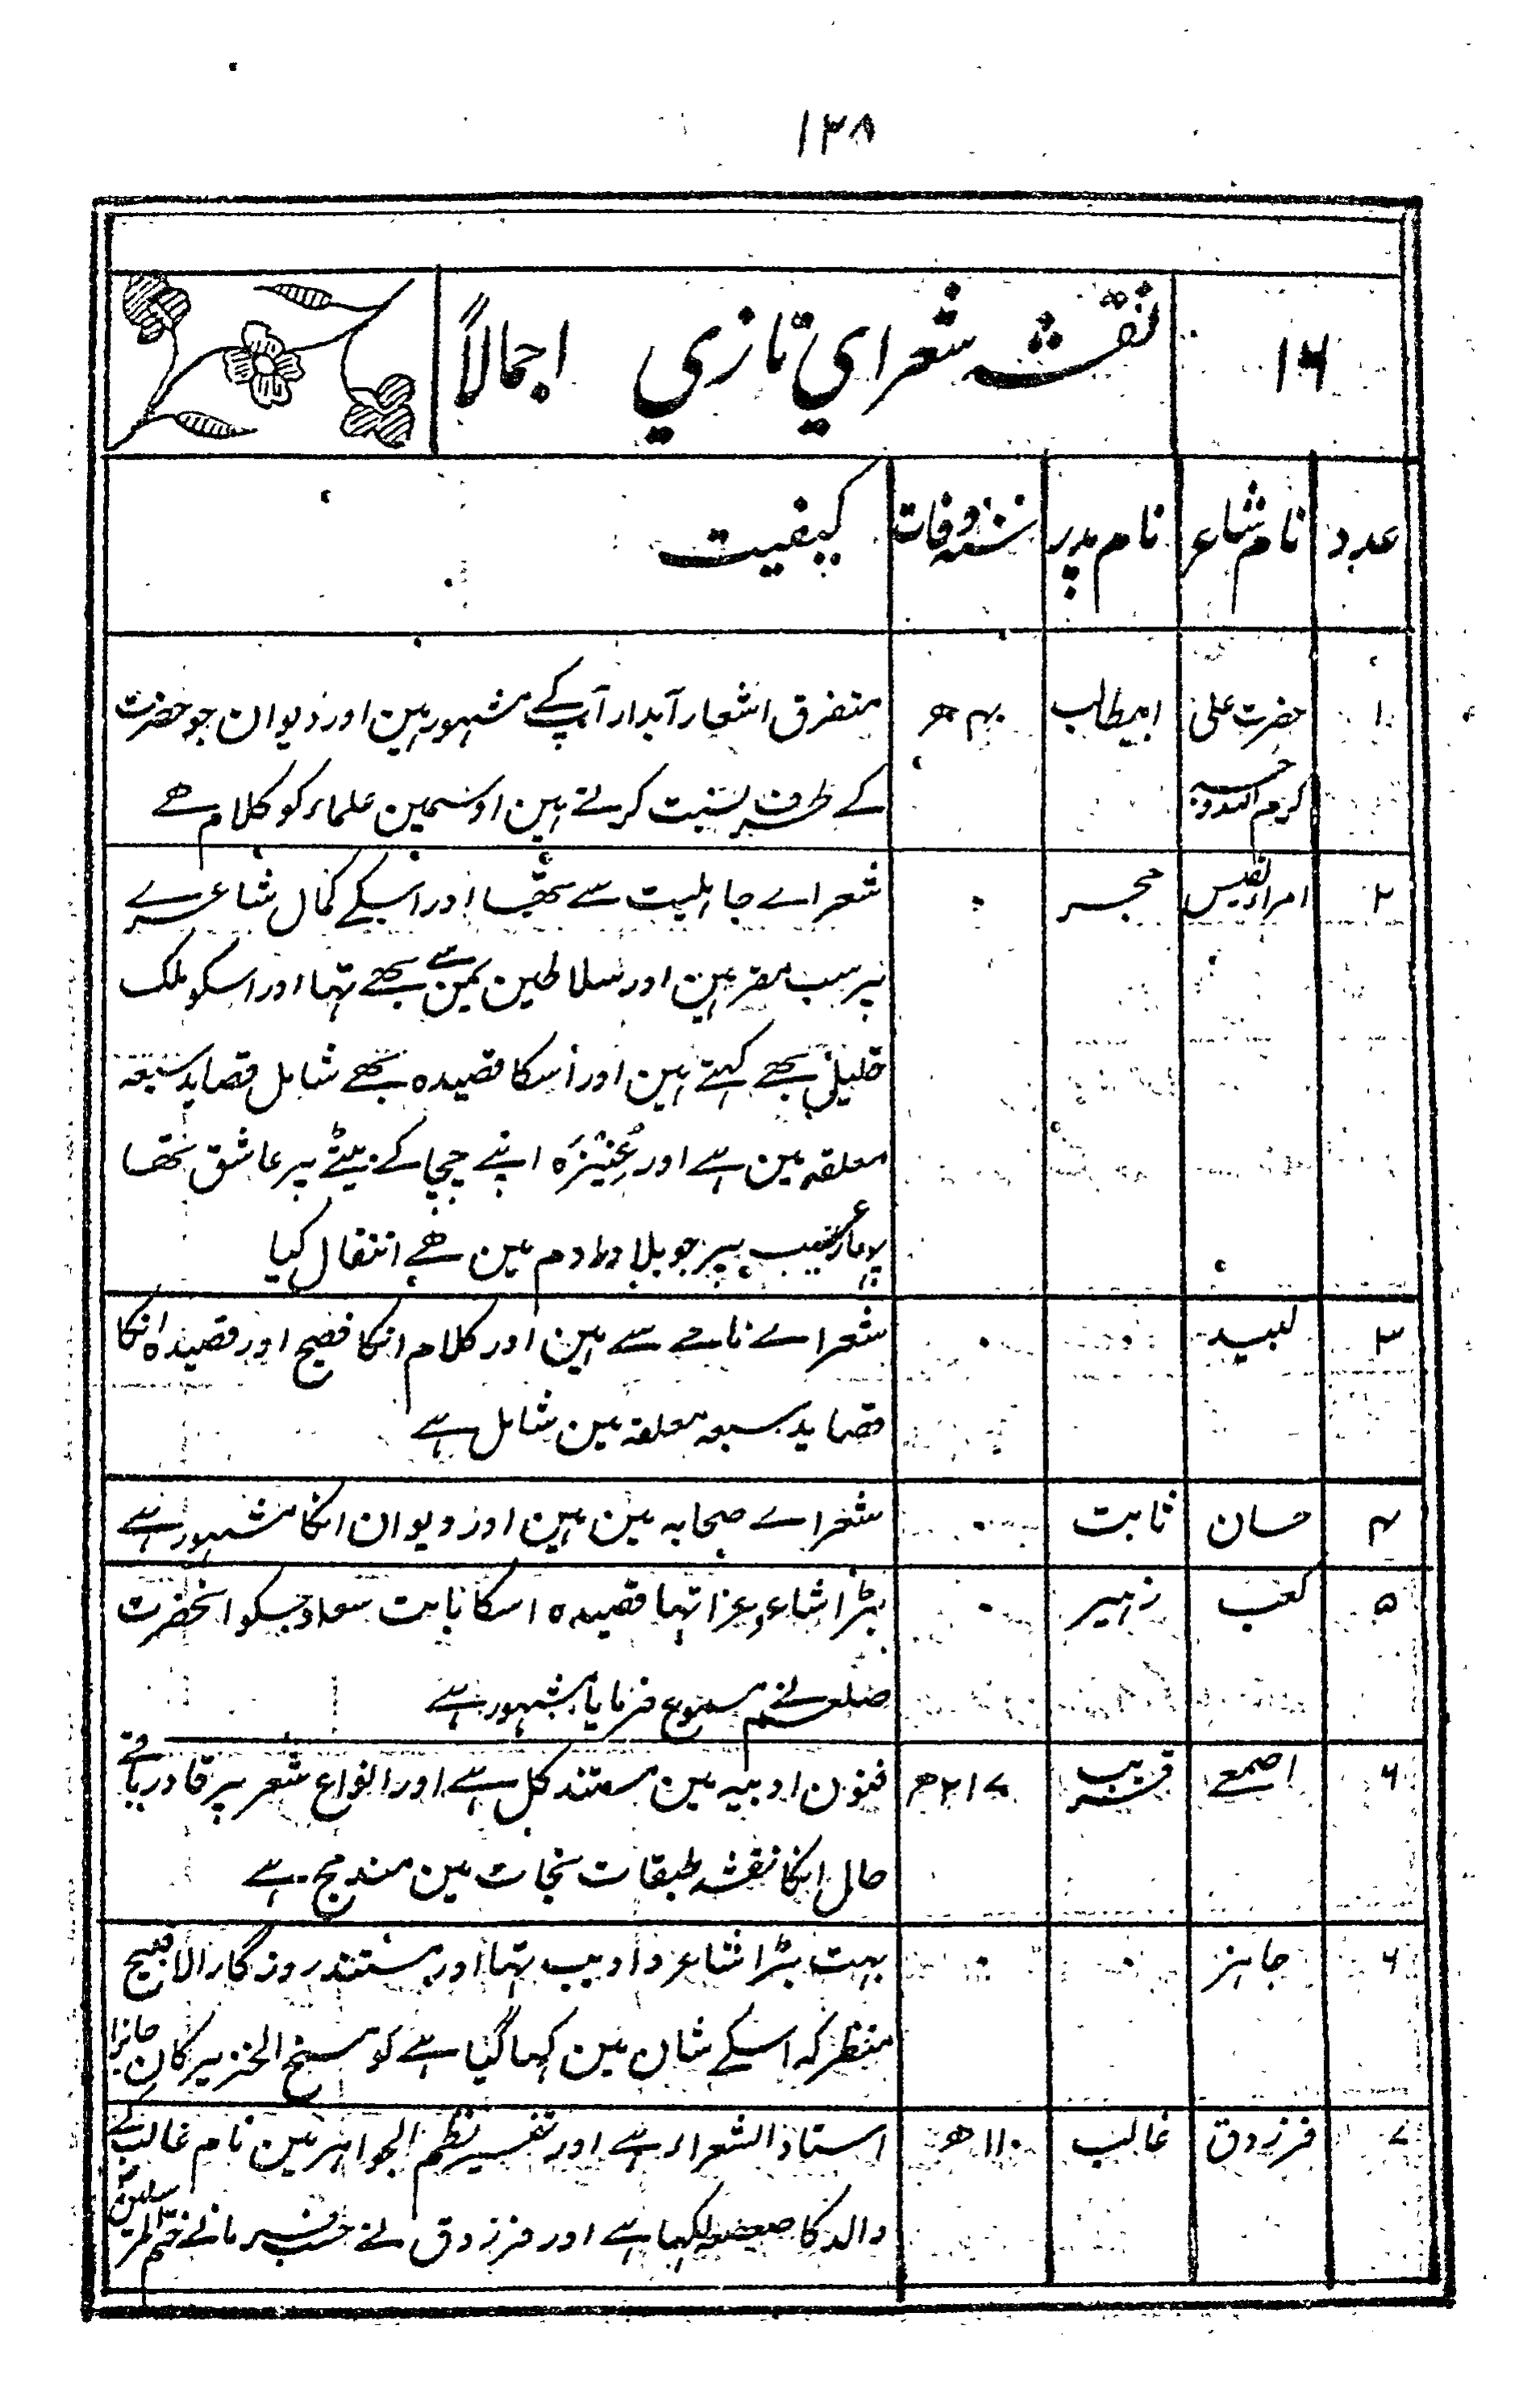 ۱۳۸
۱۶ نقشہ شعراي تازي اجمالاً
عدد نام شاعر نام پدر سنہ وفات کیفیت
۱ حضرت علی ابیطالب ۴۰ھ متفرق اشعار آبدار آپ کے مشہور ہین اور دیوان جو حضرت
کرم اللہ وجہہ کے طرف نسبت کرتے ہین اوسمین علماء کو کلام ھے
۲ امراءالقیس حجر ۰ شعراے جاہلیت سے تھا اور اسکے کمال شاعرے
پر سب مقر ہین اور سلاطین یمن سے بھے تہا اور اسکو ملک
ضلیل بھے کہتے ہین اور اُسکا قصیدہ بھے شامل قصاید سبعہ
معلقہ مین ہے اور عُنَیْزَہ اپنے چچا کے بیٹے پر عاشق تھا
پر جو بلاد روم مین ھے انتقال کیا
۳ لبید ۰ شعراے نامے سے ہین اور کلام انکا فصیح اور قصیدہ انکا
قصاید سبعہ معلقہ مین شامل ہے
۴ حسان ثابت ۰ شعراے صحابہ مین ہین اور دیوان انکا مشہور ہے
۵ کعب زہیر ۰ بڑا شاعر غرا تہا قصیدہ اسکا بانت سعاد جسکو انحضرت
صلعم نے مسموع فرمایا مشہور ہے
۶ اصمعے قریب ۲۱۷ھ فنون ادبیہ مین مستند کل ہے اور انواع شعر پر قادر باقے
حال انکا نقشہ طبقات نحات مین مندمج ہے
۶ جاہز ۰ ۰ بہت بڑا شاعر و ادیب تہا اور مستند روزگار الا قبیح
منظر کہ اسکے شان مین کہا گیا ہے کو مسخ الخنزیر کان جانزا
۷ فرزدق غالب ۱۱۰ھ استاذ الشعراء ہے اور تفسیر نظم الجواہر مین نام غالب کے
والد کا صعصعہ لکہا ہے اور فرزدق نے حسب فرمانے ختم المرسلین